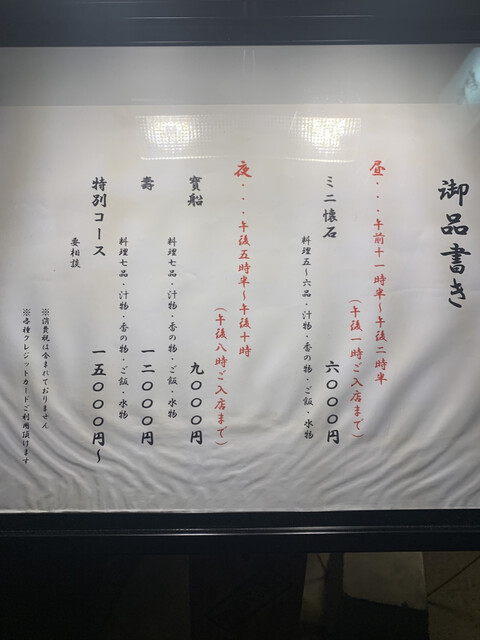 御品書き
昼・・・午前十一時半～午後二時半
(午後一時ご入店まで)
ミニ懐石 六〇〇〇円
料理五～六品・汁物・香の物・ご飯・水物
夜・・・午後五時半～午後十時
(午後八時ご入店まで)
寳船 九〇〇〇円
料理七品・汁物・香の物・ご飯・水物
壽 一二〇〇〇円
料理七品・汁物・香の物・ご飯・水物
特別コース 一五〇〇〇円～
要相談
※消費税は含まれておりません
※各種クレジットカードご利用頂けます